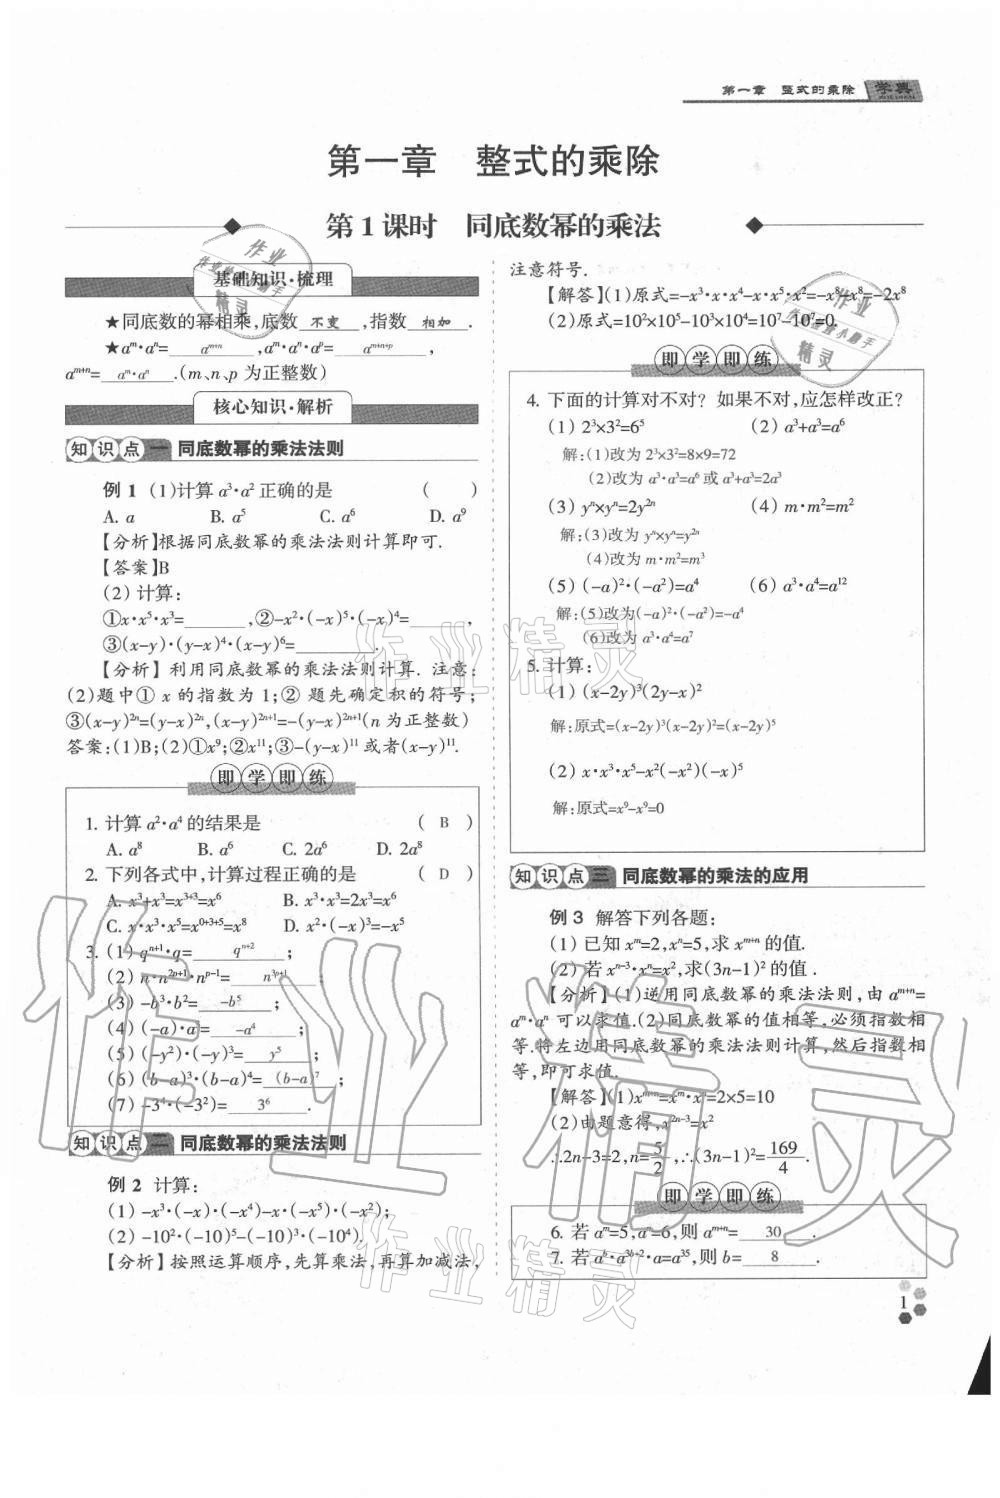 第一章 整式的乘除 学典
第一章 整式的乘除
第1课时 同底数幂的乘法
基础知识·梳理
★同底数的幂相乘,底数 不变 ,指数 相加 .
★aᵐ·aⁿ= aᵐ⁺ⁿ ,aᵐ·aⁿ·aᵖ= aᵐ⁺ⁿ⁺ᵖ ,
aᵐ⁺ⁿ= aᵐ·aⁿ .(m、n、p 为正整数)
核心知识·解析
知识点一 同底数幂的乘法法则
例 1 (1)计算 a³·a² 正确的是 ( )
A. a B. a⁵ C. a⁶ D. a⁹
【分析】根据同底数幂的乘法法则计算即可.
【答案】B
(2) 计算:
①x·x⁵·x³=________,②-x²·(-x)⁵·(-x)⁴=________,
③(x-y)·(x-y)⁴·(x-y)⁶=________.
【分析】 利用同底数幂的乘法法则计算. 注意:
(2)题中① x 的指数为 1;② 题先确定积的符号;
③(x-y)²ⁿ=(y-x)²ⁿ,(x-y)²ⁿ⁺¹=-(y-x)²ⁿ⁺¹(n 为正整数)
答案:(1)B;(2)①x⁹;②x¹¹;③-(y-x)¹¹ 或者(x-y)¹¹.
即学即练
1. 计算 a²·a⁴ 的结果是 ( B )
A. a⁸ B. a⁶ C. 2a⁶ D. 2a⁸
2. 下列各式中,计算过程正确的是 ( D )
A. x³+x³=x³⁺³=x⁶ B. x³·x³=2x³=x⁶
C. x·x³·x⁵=x⁰⁺³⁺⁵=x⁸ D. x²·(-x)³=-x⁵
3. (1) qⁿ⁺¹·q= qⁿ⁺² ;
(2) n·n²ᵖ⁺¹·nᵖ⁻¹= n³ᵖ⁺¹ ;
(3) -b³·b²= -b⁵ ;
(4) (-a)·a³= -a⁴ ;
(5) (-y²)·(-y)³= y⁵ ;
(6) (b-a)³·(b-a)⁴= (b-a)⁷ ;
(7) -3⁴·(-3²)= 3⁶ .
知识点二 同底数幂的乘法法则
例 2 计算:
(1) -x³·(-x)·(-x⁴)-x·(-x⁵)·(-x²);
(2) -10²·(-10)⁵-(-10)³·(-10⁴).
【分析】按照运算顺序,先算乘法,再算加减法,
注意符号.
【解答】(1)原式=-x³·x·x⁴-x·x⁵·x²=-x⁸-x⁸=-2x⁸
(2)原式=10²×10⁵-10³×10⁴=10⁷-10⁷=0.
即学即练
4. 下面的计算对不对? 如果不对,应怎样改正?
(1) 2³×3²=6⁵ (2) a³+a³=a⁶
解:(1)改为 2³×3²=8×9=72
(2)改为 a³·a³=a⁶ 或 a³+a³=2a³
(3) yⁿ×yⁿ=2y²ⁿ (4) m·m²=m²
解:(3)改为 yⁿ×yⁿ=y²ⁿ
(4)改为 m·m²=m³
(5) (-a)²·(-a²)=a⁴ (6) a³·a⁴=a¹²
解:(5)改为(-a)²·(-a²)=-a⁴
(6)改为 a³·a⁴=a⁷
5. 计算:
(1) (x-2y)³(2y-x)²
解:原式=(x-2y)³(x-2y)²=(x-2y)⁵
(2) x·x³·x⁵-x²(-x²)(-x)⁵
解:原式=x⁹-x⁹=0
知识点三 同底数幂的乘法的应用
例 3 解答下列各题:
(1) 已知 xᵐ=2,xⁿ=5,求 xᵐ⁺ⁿ 的值.
(2) 若 xⁿ⁻³·xⁿ=x²,求(3n-1)² 的值 .
【分析】(1)逆用同底数幂的乘法法则,由 aᵐ⁺ⁿ=
aᵐ·aⁿ 可以求值.(2)同底数幂的值相等,必须指数相
等.将左边用同底数幂的乘法法则计算,然后指数相
等,即可求值.
【解答】(1)xᵐ⁺ⁿ=xᵐ·xⁿ=2×5=10
(2)由题意得,x²ⁿ⁻³=x²
∴2n-3=2,n=5/2,∴(3n-1)²=169/4.
即学即练
6. 若 aᵐ=5,aⁿ=6,则 aᵐ⁺ⁿ= 30 .
7. 若 aᵇ·a³ᵇ⁺²·a=a³⁵,则 b= 8 .
1
作业精灵
作业精灵
作业精灵